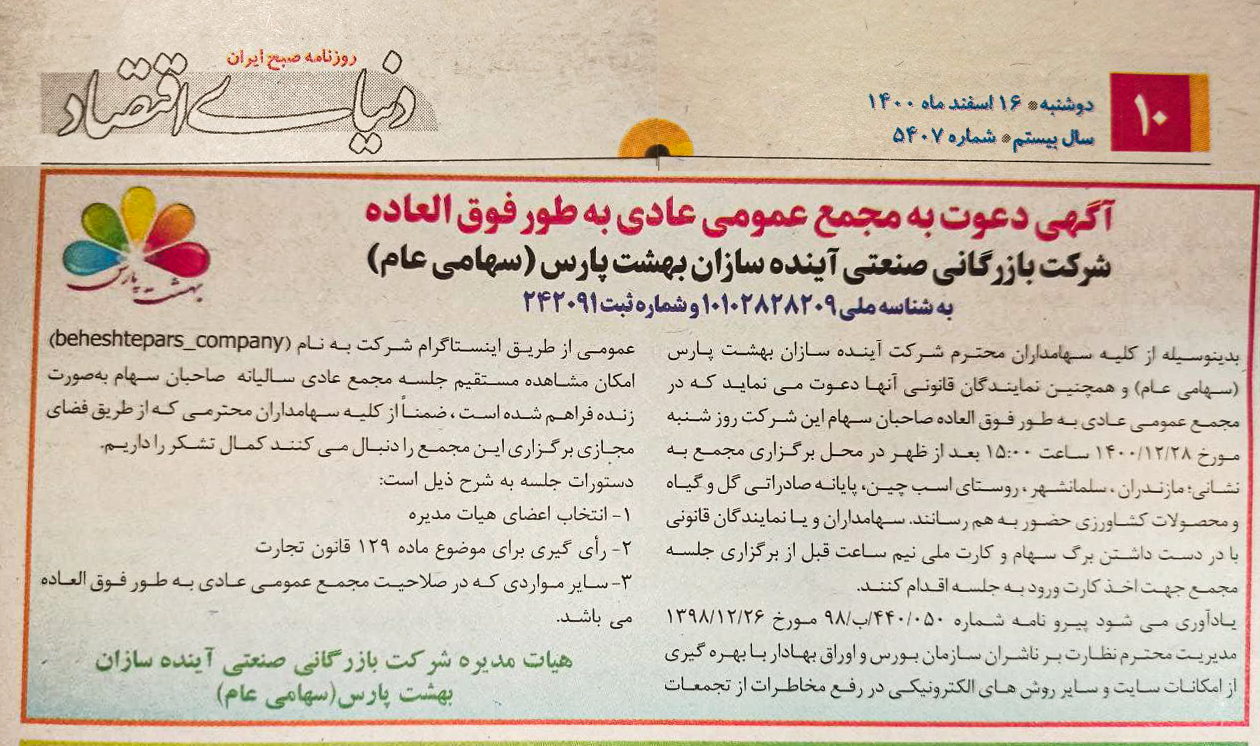 روزنامه صبح ایران
دنیای اقتصاد
۱۰
دوشنبه ۱۶ اسفند ماه ۱۴۰۰
سال بیستم شماره ۵۴۰۷
بهشت پارس
آگهی دعوت به مجمع عمومی عادی به طور فوق العاده
شرکت بازرگانی صنعتی آینده سازان بهشت پارس (سهامی عام)
به شناسه ملی ۱۰۱۰۲۸۲۸۲۰۹ و شماره ثبت ۲۴۲۰۹۱
بدینوسیله از کلیه سهامداران محترم شرکت آینده سازان بهشت پارس
(سهامی عام) و همچنین نمایندگان قانونی آنها دعوت می نماید که در
مجمع عمومی عادی به طور فوق العاده صاحبان سهام این شرکت روز شنبه
مورخ ۱۴۰۰/۱۲/۲۸ ساعت ۱۵:۰۰ بعد از ظهر در محل برگزاری مجمع به
نشانی: مازندران، سلمانشهر، روستای اسب چین، پایانه صادراتی گل و گیاه
و محصولات کشاورزی حضور به هم رسانند. سهامداران و یا نمایندگان قانونی
با در دست داشتن برگ سهام و کارت ملی نیم ساعت قبل از برگزاری جلسه
مجمع جهت اخذ کارت ورود به جلسه اقدام کنند.
یادآوری می شود پیرو نامه شماره ۴۴۰/۰۵۰/ب/۹۸ مورخ ۱۳۹۸/۱۲/۲۶
مدیریت محترم نظارت بر ناشران سازمان بورس و اوراق بهادار با بهره گیری
از امکانات سایت و سایر روش های الکترونیکی در رفع مخاطرات از تجمعات
عمومی از طریق اینستاگرام شرکت به نام (beheshtepars_company)
امکان مشاهده مستقیم جلسه مجمع عادی سالیانه صاحبان سهام به‌صورت
زنده فراهم شده است، ضمناً از کلیه سهامداران محترمی که از طریق فضای
مجازی برگزاری این مجمع را دنبال می کنند کمال تشکر را داریم.
دستورات جلسه به شرح ذیل است:
۱- انتخاب اعضای هیات مدیره
۲- رأی گیری برای موضوع ماده ۱۲۹ قانون تجارت
۳- سایر مواردی که در صلاحیت مجمع عمومی عادی به طور فوق العاده
می باشد.
هیات مدیره شرکت بازرگانی صنعتی آینده سازان
بهشت پارس(سهامی عام)